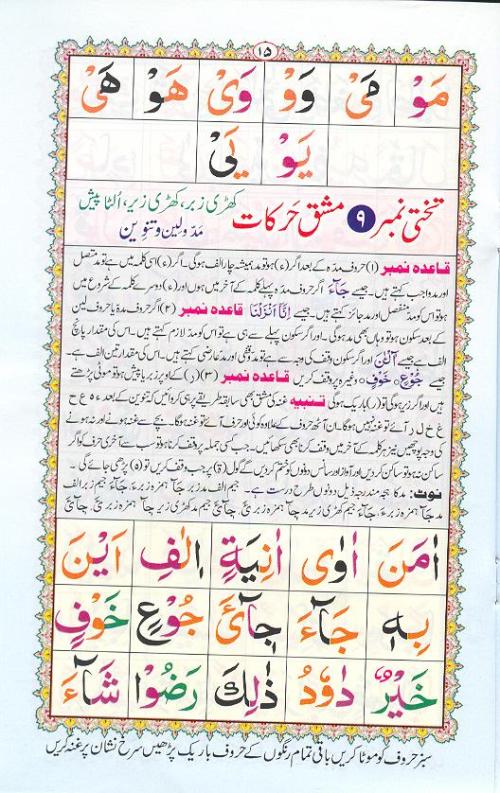 ۱۵
مَوْ مَیْ وَوْ وَیْ هَوْ هَیْ
یَوْ یَیْ
تختی نمبر ۹ مشق حَرکات کھڑی زبر، کھڑی زیر، اُلٹا پیش
مدّ و لین و تنوین
قاعدہ نمبر (۱) حروف مدّہ کے بعد اگر (ء) ہو تو مد ہمیشہ چار الف ہوگی۔ اگر (ء) اسی کلمہ میں ہے تو مد متصل
اور مد واجب کہتے ہیں۔ جیسے جَآءَ اگر حروف مدّہ پہلے کلمہ کے آخر میں ہوں اور (ء) دوسرے کلمہ کے شروع میں
ہو تو اس کو مد منفصل اور مد جائز کہتے ہیں۔ جیسے اِنَّآ اَنْزَلْنَا قاعدہ نمبر (۲) اگر حروف مدہ یا حروف لین
کے بعد سکون ہو تو وہاں بھی مد ہوگی۔ اور اگر سکون پہلے سے ہی ہے تو اس کو مد لازم کہتے ہیں۔ اس کی مقدار پانچ
الف ہے جیسے آٰلْئٰنَ اور اگر سکون وقف کی وجہ سے ہے تو مد وقفی اور مد عارضی کہتے ہیں۔ اس کی مقدار تین الف ہے۔
جیسے جُوْعٍ، خَوْفٍ وغیرہ پر وقف کریں قاعدہ نمبر (۳) (ر) کے اوپر زبر یا پیش ہو تو موٹی پڑھتے
ہیں اور اگر زیر ہوگی تو (ر) باریک ہوگی تنبیہ غنہ کی مشق بھی سابقہ طریقے پر ہی کروائیں کہ تنوین کے بعد ء ہ ع ح
غ خ ل ر آئے تو غنہ نہیں ہوگا۔ ان آٹھ حروف کے علاوہ کوئی اور حرف آئے تو غنہ ہوگا۔ بچے سے غنہ ہونے اور نہ ہونے
کی وجہ پوچھیں نیز ہر کلمہ کے آخر میں وقف کرنا بھی سکھائیں۔ جب کسی جملہ پر وقف کرنا ہو تو سب سے آخری حرف کو اگر
ساکن نہ ہو تو ساکن کر دیں اور آواز اور سانس دونوں کو ختم کر دیں گے گول (ۃ) پر جب وقف کریں تو (ہ) پڑھی جائے گی۔
نوٹ: مد کا ہجہ مندرجہ ذیل دونوں طرح درست ہے۔ جیم الف مد زبر جَآ ہمزہ زبر ءَ، جَآءَ جیم زبر الف
مد جَآ ہمزہ زبر ءَ، جَآءَ۔
اٰمَنَ اٰوٰی اٰنِیَةٍ اِلٰفِ اَیْنَ
بِهٖ جَآءَ جِآیْٓءَ جُوْعٍ خَوْفٍ
خَیْرٌ دَاوٗدُ ذٰلِكَ رَضُوْا شَآءَ
سبز حروف کو موٹا کریں باقی تمام رنگوں کے حروف باریک پڑھیں سرخ نشان پر غنہ کریں